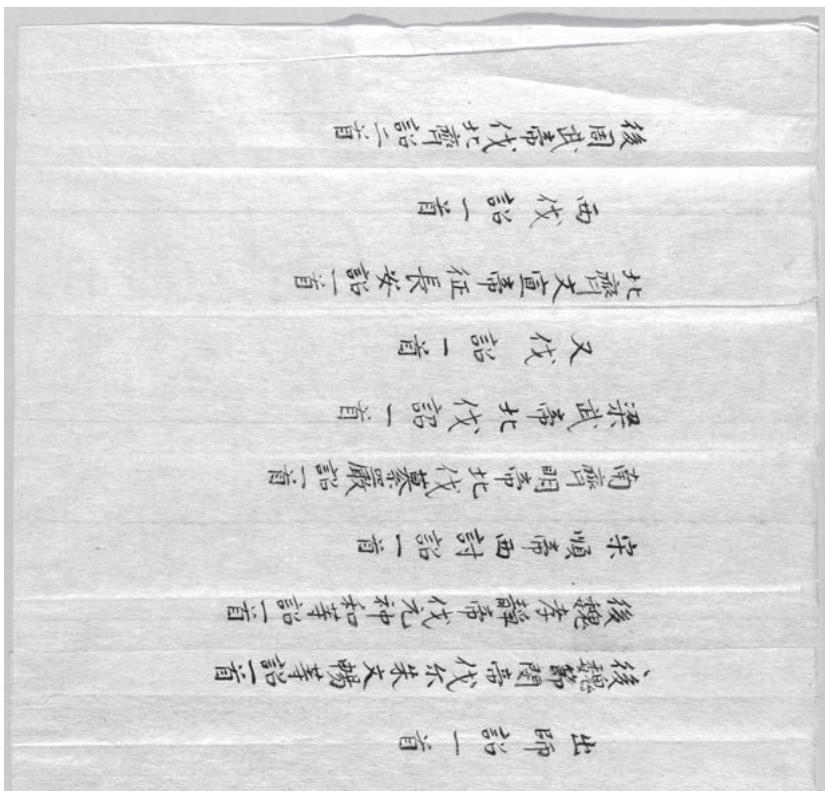 出師詔一首
後魏節閔帝伐尔朱文暢等詔一首
後魏孝靜帝伐元神和等詔一首
宋順帝西討詔一首
南齊明帝北伐纂嚴詔一首
梁武帝北伐詔一首
又伐詔一首
北齊文宣帝征長安詔一首
西伐詔一首
後周武帝伐北齊詔二首